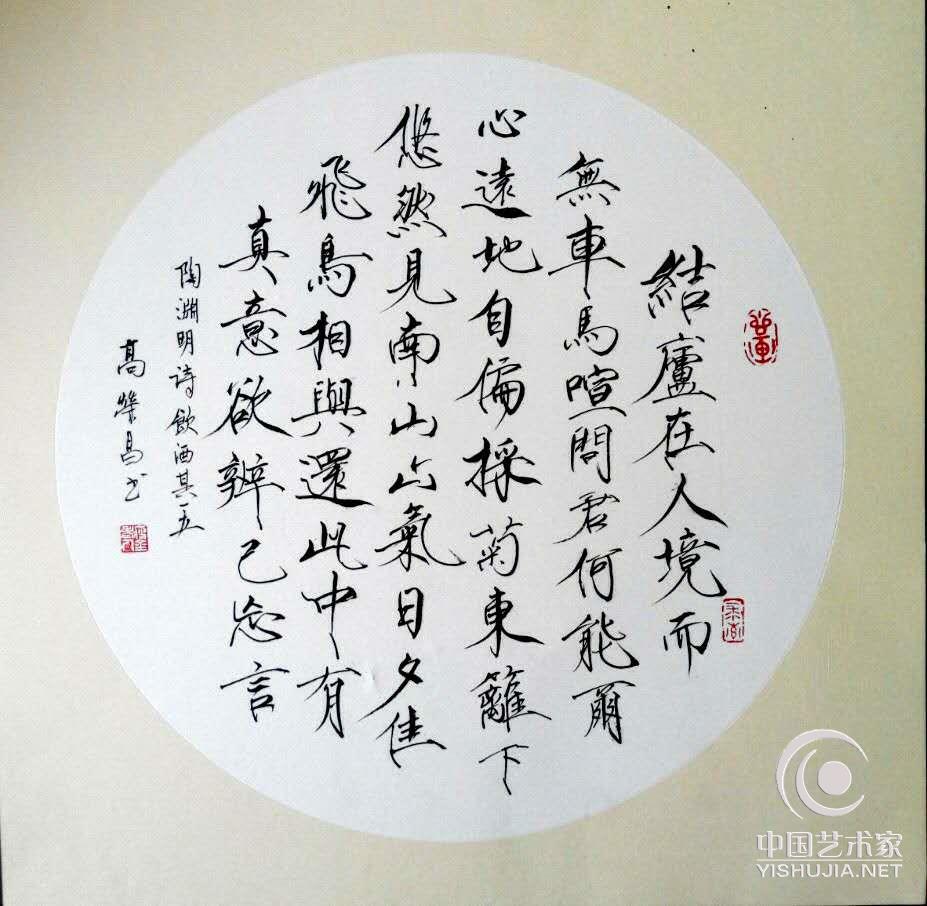 結廬在人境而
無車馬喧問君何能爾
心遠地自偏採菊東籬下
悠然見南山山氣日夕佳
飛鳥相與還此中有
真意欲辨已忘言
陶淵明詩飲酒其五
高榮昌书
中国艺术家
YISHUJIA.NET